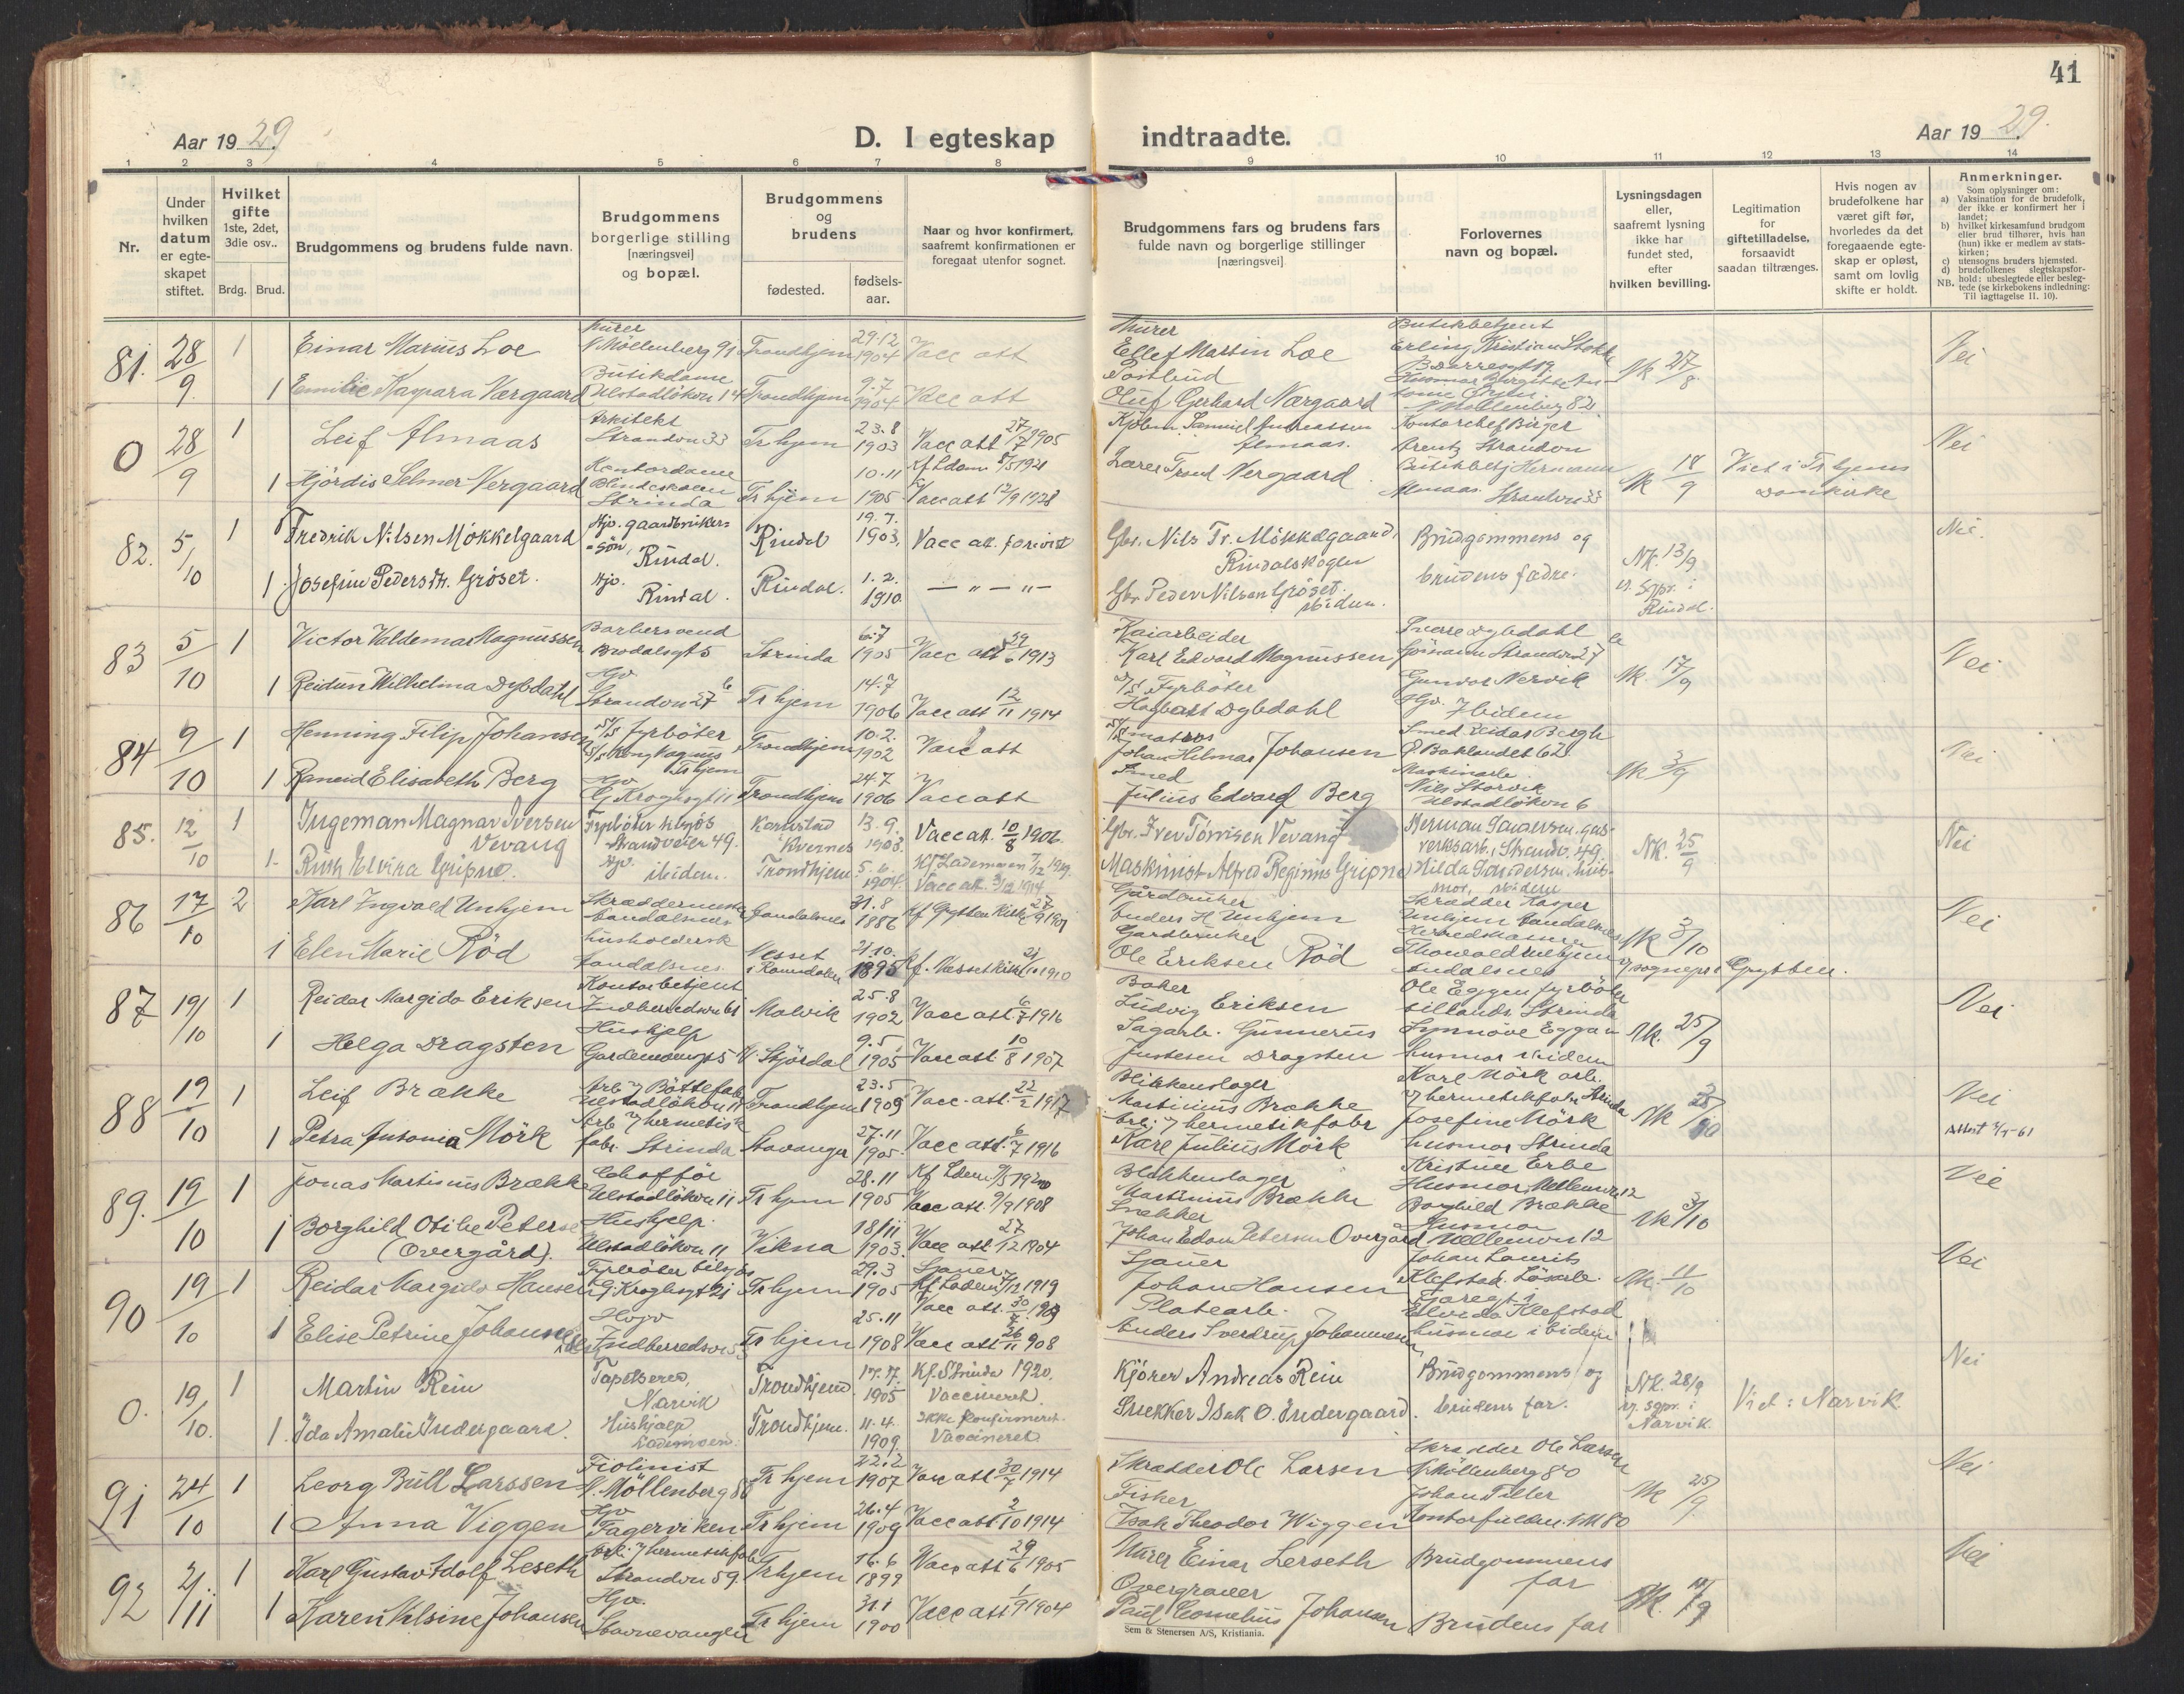 41
Aar 1929.
D. I egteskap
indtraadte.
Aar 1929.
1 2 3 4 5 6 7 8 9 10 11 12 13 14
Nr.
Under hvilken datum er egteskapet stiftet.
Hvilket gifte 1ste, 2det, 3die osv..
Brdg. Brud.
Brudgommens og brudens fulde navn.
Brudgommens borgerlige stilling [næringsvei] og bopæl.
Brudgommens og brudens
fødested.
fødselsaar.
Naar og hvor konfirmert, saafremt konfirmationen er foregaat utenfor sognet.
Brudgommens fars og brudens fars fulde navn og borgerlige stillinger [næringsvei]
Forlovernes navn og bopæl.
Lysningsdagen eller, saafremt lysning ikke har fundet sted, efter hvilken bevilling.
Legitimation for giftetilladelse, forsaavidt saadan tiltrænges.
Hvis nogen av brudefolkene har været gift før, hvorledes da det foregaaende egteskap er opløst, samt om lovlig skifte er holdt.
Anmerkninger.
Som oplysninger om:
a) Vaksination for de brudefolk, der ikke er konfirmert her i landet;
b) hvilket kirkesamfund brudgom eller brud tilhører, hvis han (hun) ikke er medlem av statskirken;
c) utensogns bruders hjemsted.
d) brudefolkenes slegtskapsforhold: ubeslegtede eller beslegtede (se kirkebokens indledning: Til iagttagelse II. 10).
NB.
81. 28/9 1 Einar Marius Loe Murer N. Möllenberg 91 Trondhjem 29.12 1904 Vacc att Murer Ellef Martin Loe Butikbetjent Erling Kristian Stokke Nk 27/8 Nei
1 Emilie Kaspara Nærgaard Butikdame Ulstadløkken 14 Trondhjem 9.7 1904 Vacc att Postbud Oluf Gerhard Nærgaard N Möllenberg 82
0 28/9 1 Leif Almaas Arkitekt Strandvn 33 Tr hjem 23.8 1903 Vacc att 27/7 1905 Kjøbm. Samuel Andreassen Almaas. Kontorchef Birger Arentz Strandvn Nei
1 Hjördis Selmer Vergaard Kontordame Blindeskolen Strinda Tr hjem 10.11 1905 Vacc att 12/9 1928 Lærer Trond Vergaard Butikkbetj Hermann Almaas. Strandvn 33 Nk 18/9 Viet i Tr hjems Domkirke
82. 5/10 1 Fredrik Nilsen Møkkelgaard Hjv. gaardbrukers søn, Rindal. Rindal 19.7. 1903. Vacc att. forevist Gbr. Nils Tr. Møkkelgaard, Rindalskogen Brudgommens og brudens fædre. Nk. 13/9 v. Sgpr. i Rindal. Nei.
1. Josefine Pedersdtr. Grøset. Hjv. Rindal. Rindal. 1.2. 1910 — " — " — Gbr Peder Nilsen Grøset. ibidem.
83 5/10 1 Victor Valdemar Magnussen Barbersvend Brodalsgt 5 Strinda 6.7 1905 Vacc att 29/6 1913 Kaiarbeider Karl Edvard Magnussen Sverre Dybdahl Sjömann Strandvn 27 Nk. 17/9 Nei
1 Reidun Wilhelma Dybdahl Hjv Strandvn 27 b Tr hjem 14.7 1906 Vacc att 12/11 1914 D/S Fyrböter Hagbart Dybdahl Gunvor Nervik Hjv. Ibidem
84 9/10 1 Henning Filip Johansen S/S fyrböter S/S Kong Magnus Tr hjem Trondhjem 10.2. 1902 Vacc att S/S matros Johan Hilmar Johansen Smed Reidar Bergh Ø. Baklandet 62 Nk 3/9 Nei
1 Ranveid Elisabeth Berg Hjv G. Kroghsgt 11 Trondhjem 24.7 1906 Vacc att Smed Julius Edvard Berg Maskinarb. Nils Storvik Ulstadlökvn 6
85. 12/10 1 Ingeman Magnar Iversen Vevang Fyrböter tilsjøs Strandveien 49. Karnstad Kvernes 13.9. 1903. Vacc att. 10/8 1906 Gbr. Iver Tønnisen Vevang Herman Sandersen, gasverksarb., Strandv. 49 Nk. 25/9 Nei
1. Ruth Elvira Gripne. Hjv. ibidem. Trondhjem 5.6. 1904. Kf Lademoen 7/12 1919. Vacc att. 3/12 1914 Maskinist Alfred Reginus Gripne Hilda Sandersen, husmor, ibidem
86 17/10 2 Karl Ingvald Unhjem Skræddermester Aandalsnes Aandalsnes 31.8 1886 Kf Grytten Kirke 27/9 1901 Gårdbruker Anders H Unhjem Skrædder Kasper Unhjem Aandalsnes Nk 3/10 v/ sognepr i Grytten. Nei
1 Elen Marie Röd husholdersk Aandalsnes Nesset i Romsdalen 21.10. 1895 Kf. Nesset Kirke 1910 Gardbruker Ole Eriksen Röd Andalsnes
87 19/10 1 Reidar Margido Eriksen Kontorbetjent Indherredsvn 61 Malvik 25.8 1902 Vacc att. 6/7 1916 Baker Ludvig Eriksen Ole Eggen fyrböter tillands Strinda Nk. 25/9 Nei
1 Helga Dragsten Hushjelp Gardemoensgt 5 N. Stjördal 9.5. 1905 Vacc att. 10/8 1907 Sagarb. Gunnerius Justesen Dragsten Synnöve Eggen husmor ibidem
88 19/10 1 Leif Brække Arb. v/ Böttefabr Ulstadlökvn 11 Trondhjem 23.5 1909 Vacc. att. 22/2 1917 Blikkenslager Martinius Brække Karl Mörk arb. v/ hermetikfabr. Strinda Nk Nei
1 Petra Antonia Mörk Arb v/ hermetisk fabr. Strinda Stavanger 27.11 1905. Vacc att. 6/7 1916 Arb. v/ hermetikfabr Karl Julius Mörk Josefine Mörk husmor Strinda Attest 2/5-61
89. 19/10 1 Jonas Martinius Brække Chafför Ulstadlökvn 11 Tr hjem 28.11 1905 Vacc att. 9/9 1908 Blikkenslager Martinius Brække Kristine Erbe Husmor Mellemvn 12 Nk 3/10 Nei
1 Borghild Otilie Petersen (Overgård). Hushjelp. Ulstadlökvn 11 Vikna 18/11 1903. Vacc att 27/12 1904 Snekker Johan Edon Petersen Overgård Borghild Brække Husmor Mellemvn 12
90 19/10 1 Reidar Margido Hansen Fyrböter tilsjøs G. Kroghsgt 21 Tr hjem 29.3 1905 Vacc att. Sjauer Johan Hansen Johan Laurits Klefstad. Lösarb. Nk. 11/10 Nei
1 Elise Petrine Johannesen Hvgv Indherredsvn Tr hjem 25.11 1908 Vacc att 26/11 908 Platearb. Anders Sverdrup Johannesen Elvida Klefstad husmor ibidem
0. 19/10. 1 Martin Rein Tapetserer, Narvik Trondhjem 17.7. 1905 Kf. Strinda 1920. Vaccineret. Kjörer Andreas Rein Brudgommens og brudens far. Nk. 28/9 v. sgpr. i Narvik Viet i Narvik Nei
1. Ida Amalie Indergaard. Hushjælp Lademoen. Trondhjem. 11.4. 1909. Ikke konfirmeret. Vaccineret Snekker Isak O. Indergaard.
91 24/10 1 Georg Bull Larssen Fiolinist N. Möllenberg 80 Tr hjem 22.2 1907 Vacc att 30/7 1914 Skrædder Ole Larsen Skrædder Ole Larssen N. Möllenberg 80 Nk 25/9 Nei
1 Anna Viggen Hjv Fagerviken Tr hjem 26.4 1909 Vacc att 2/10 1914 Fisker Isak Theodor Wiggen Johan Tiller
92 2/11 1 Karl Gustav Adolf Leseth Arb. v/ hermetikfabr Strandvn 59. Tr hjem 16.6 1899 Vacc att 29/6 1905 Murer Einar Lerseth Brudgommens far Nk. Nei
1 Karen Ulsine Johansen Hjv. Stavnevangen Tr hjem 31.1 1900 Vacc att. 1/9 1904 Overgraver Paul Cornelius Johansen Brudens far
Sem & Stenersen A/S, Kristiania.